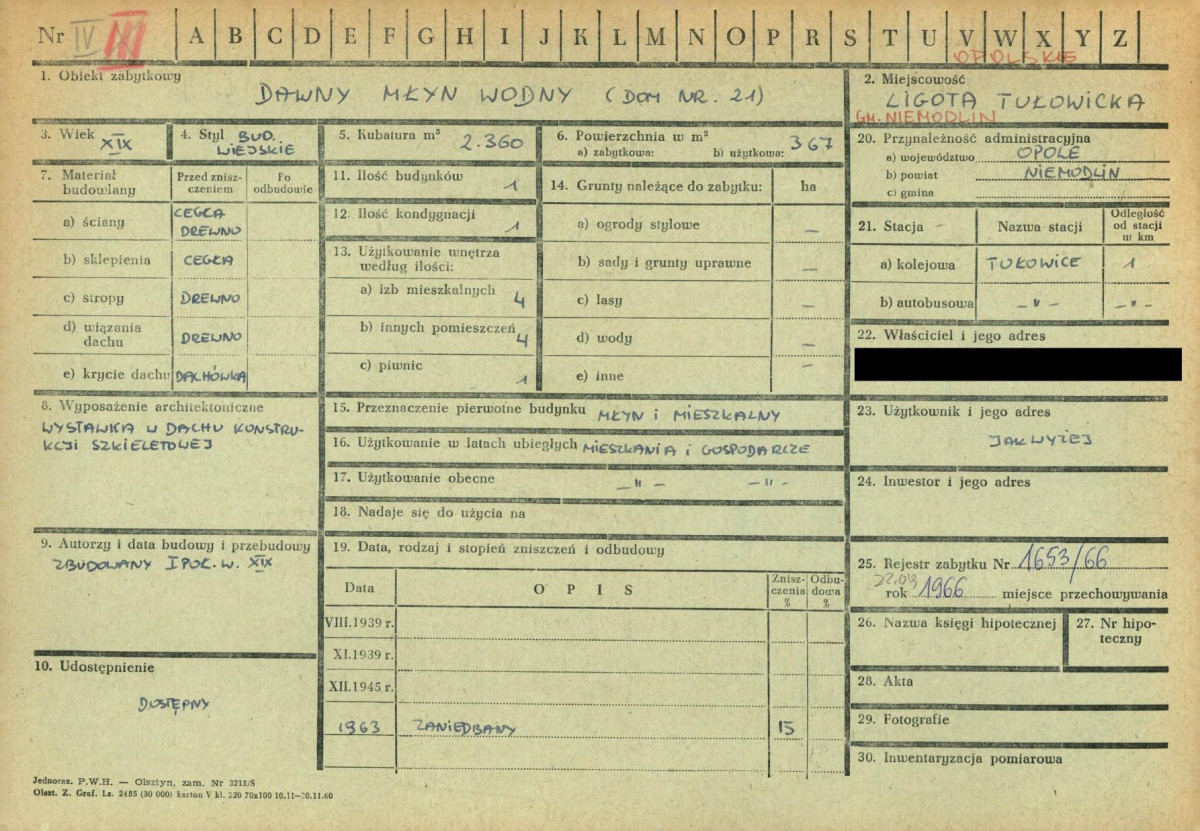 Nr IV III A B C D E F G H I J K L M N O P R S T U V W X Y Z
OPOLSKIE
1. Obiekt zabytkowy
DAWNY MŁYN WODNY (DOM NR. 21)
2. Miejscowość
LIGOTA TUŁOWICKA
GM. NIEMODLIN
3. Wiek
XIX
4. Styl BUD.
WIEJSKIE
5. Kubatura m³
2.360
6. Powierzchnia w m²
a) zabytkowa: b) użytkowa: 367
7. Materiał budowlany
Przed zniszczeniem
Po odbudowie
a) ściany CEGŁA
DREWNO
b) sklepienia CEGŁA
c) stropy DREWNO
d) wiązania
dachu DREWNO
e) krycie dachu DACHÓWKA
8. Wyposażenie architektoniczne
WYSTAWKA W DACHU KONSTRU-
KCJI SZKIELETOWEJ
9. Autorzy i data budowy i przebudowy
ZBUDOWANY I POŁ. W. XIX
10. Udostępnienie
DOSTĘPNY
11. Ilość budynków
1
12. Ilość kondygnacji
1
13. Użytkowanie wnętrza
według ilości:
a) izb mieszkalnych 4
b) innych pomieszczeń 4
c) piwnic 1
14. Grunty należące do zabytku: ha
a) ogrody stylowe –
b) sady i grunty uprawne –
c) lasy –
d) wody –
e) inne –
15. Przeznaczenie pierwotne budynku MŁYN i MIESZKALNY
16. Użytkowanie w latach ubiegłych MIESZKANIA i GOSPODARCZE
17. Użytkowanie obecne – " – – " –
18. Nadaje się do użycia na
19. Data, rodzaj i stopień zniszczeń i odbudowy
Data OPIS Znisz-
czenia
% Odbu-
dowa
%
VIII.1939 r.
XI.1939 r.
XII.1945 r.
1963 ZANIEDBANY 15
20. Przynależność administracyjna
a) województwo OPOLE
b) powiat NIEMODLIN
c) gmina
21. Stacja Nazwa stacji Odległość
od stacji
w km
a) kolejowa TUŁOWICE 1
b) autobusowa – " – – " –
22. Właściciel i jego adres
23. Użytkownik i jego adres
JAK WYŻEJ
24. Inwestor i jego adres
25. Rejestr zabytku Nr 1653/66
22.09
rok 1966 miejsce przechowywania
26. Nazwa księgi hipotecznej
27. Nr hipo-
teczny
28. Akta
29. Fotografie
30. Inwentaryzacja pomiarowa
Jednoraz. P.W.H. — Olsztyn, zam. Nr 3215/S
Olszt. Z. Graf. Lz. 2485 (30 000) karton V kl. 220 70x100 10.11—30.11.60